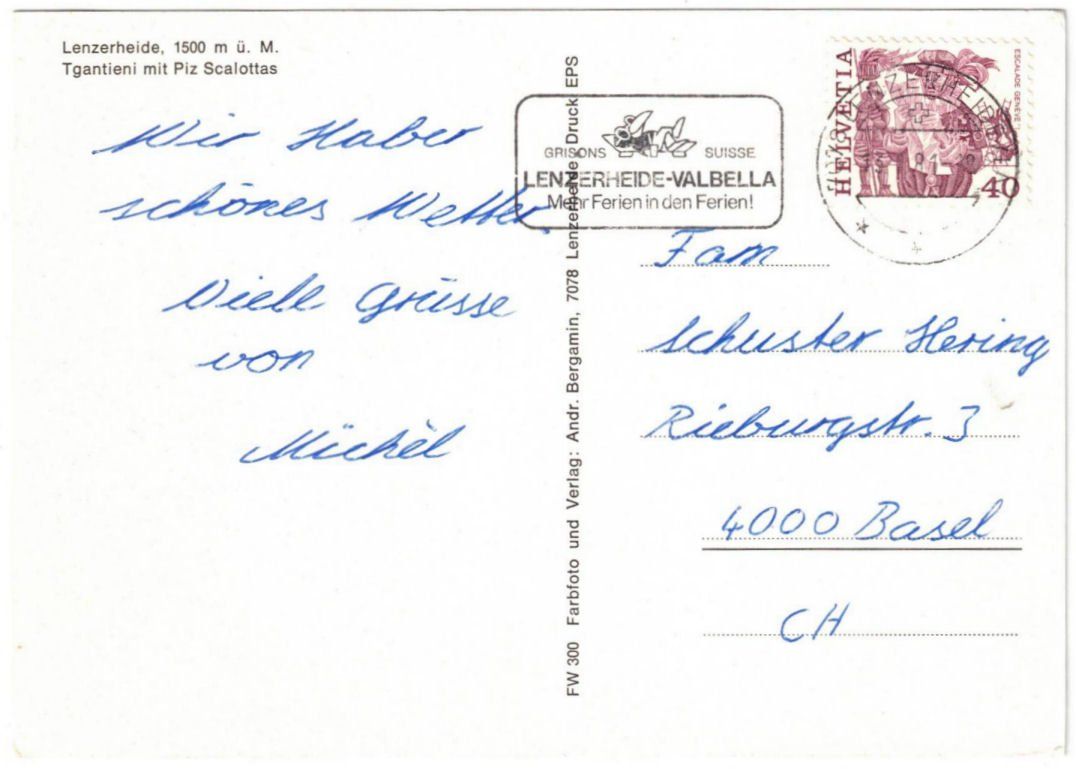 Lenzerheide, 1500 m ü. M.
Tgantieni mit Piz Scalottas
Wir Haber
schönes Wetter.
Viele Grüsse
von
Michèl
FW 300 Farbfoto und Verlag: Andr. Bergamin, 7078 Lenzerheide Druck: EPS
GRISONS SUISSE
LENZERHEIDE-VALBELLA
Mehr Ferien in den Ferien!
HELVETIA
ESCALADE GENÈVE
40
Fam
Schuster Hering
Rieburgstr. 3
4000 Basel
CH